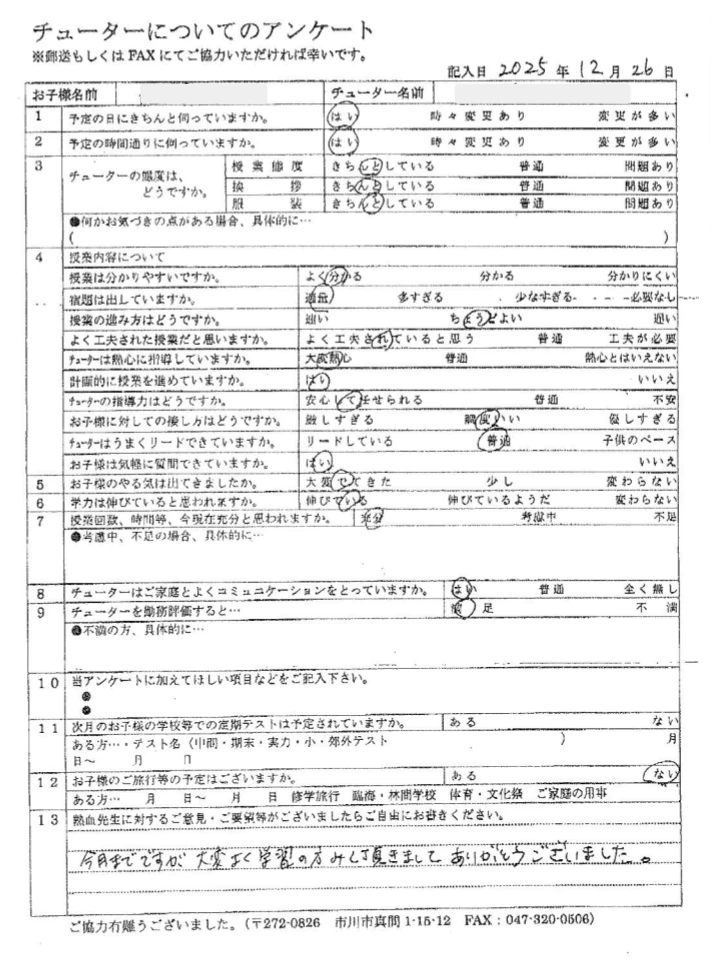 チューターについてのアンケート
※郵送もしくは FAX にてご協力いただければ幸いです。
記入日 2025 年 12 月 26 日
お子様名前 チューター名前
1 予定の日にきちんと伺っていますか。 はい 時々変更あり 変更が多い
2 予定の時間通りに伺っていますか。 はい 時々変更あり 変更が多い
3 チューターの態度は、どうですか。 授業態度 きちんとしている 普通 問題あり
挨拶 きちんとしている 普通 問題あり
服装 きちんとしている 普通 問題あり
●何かお気づきの点がある場合、具体的に…
( )
4 授業内容について
授業は分かりやすいですか。 よく分かる 分かる 分かりにくい
宿題は出していますか。 適量 多すぎる 少なすぎる 必要なし
授業の進み方はどうですか。 速い ちょうどよい 遅い
よく工夫された授業だと思いますか。 よく工夫されていると思う 普通 工夫が必要
チューターは熱心に指導していますか。 大変熱心 普通 熱心とはいえない
計画的に授業を進めていますか。 はい いいえ
チューターの指導力はどうですか。 安心して任せられる 普通 不安
お子様に対しての接し方はどうですか。 厳しすぎる 調度いい 優しすぎる
チューターはうまくリードできていますか。 リードしている 普通 子供のペース
お子様は気軽に質問できていますか。 はい いいえ
5 お子様のやる気は出てきましたか。 大変でてきた 少し 変わらない
6 学力は伸びていると思われますか。 伸びている 伸びているようだ 変わらない
7 授業回数、時間等、今現在充分と思われますか。 充分 考慮中 不足
●考慮中、不足の場合、具体的に…
8 チューターはご家庭とよくコミュニケーションをとっていますか。 はい 普通 全く無し
9 チューターを勤務評価すると… 満足 不満
●不満の方、具体的に…
10 当アンケートに加えてほしい項目などをご記入下さい。
●
●
11 次月のお子様の学校等での定期テストは予定されていますか。 ある ない
ある方…・テスト名（中間・期末・実力・小・郊外テスト ） 月
日～ 月 日
12 お子様のご旅行等の予定はございますか。 ある ない
ある方… 月 日～ 月 日 修学旅行 臨海・林間学校 体育・文化祭 ご家庭の用事
13 熱血先生に対するご意見・ご要望等がございましたらご自由にお書きください。
今月までですが 大変よく学習の方みて頂きまして ありがとうございました。
ご協力有難うございました。（〒272-0826 市川市真間 1-15-12 FAX：047-320-0506）